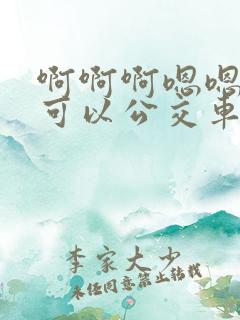 啊啊啊嗯嗯
可以公交车
李家大少
未经同意禁止转载